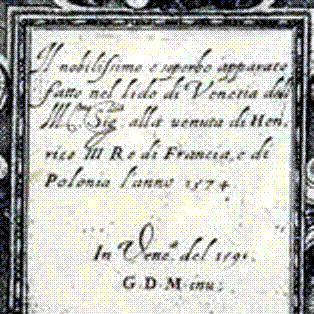 Il nobilissimo e superbo apparato
fatto nel lido di Venetia dal
M. Sig. alla venuta di Hen,
rico III Re di Francia, e di
Polonia l'anno 1574.
In Vene.ª del 1591.
G. D. M. inu: